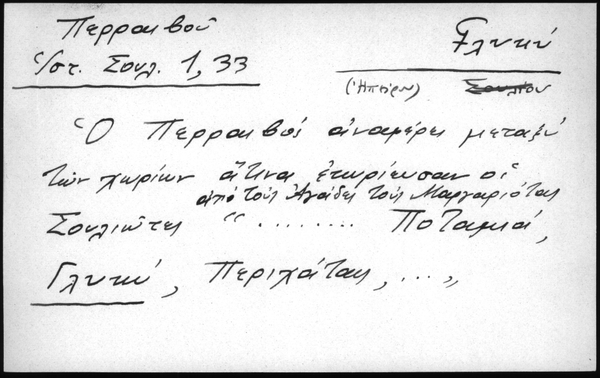 Περραιβού
Ἱστ. Σουλ. 1, 33
Γλυκύ
(Ἠπείρου) Σουλίου
Ὁ Περραιβός ἀναφέρει μεταξύ
τῶν χωρίων ἅτινα ἐκυρίευσαν οἱ
ἀπό τούς Ἀγάδες τούς Μαργαριώτας
Σουλιῶτες “........ Ποταμιά,
Γλυκύ, Περιχάτας, ...„